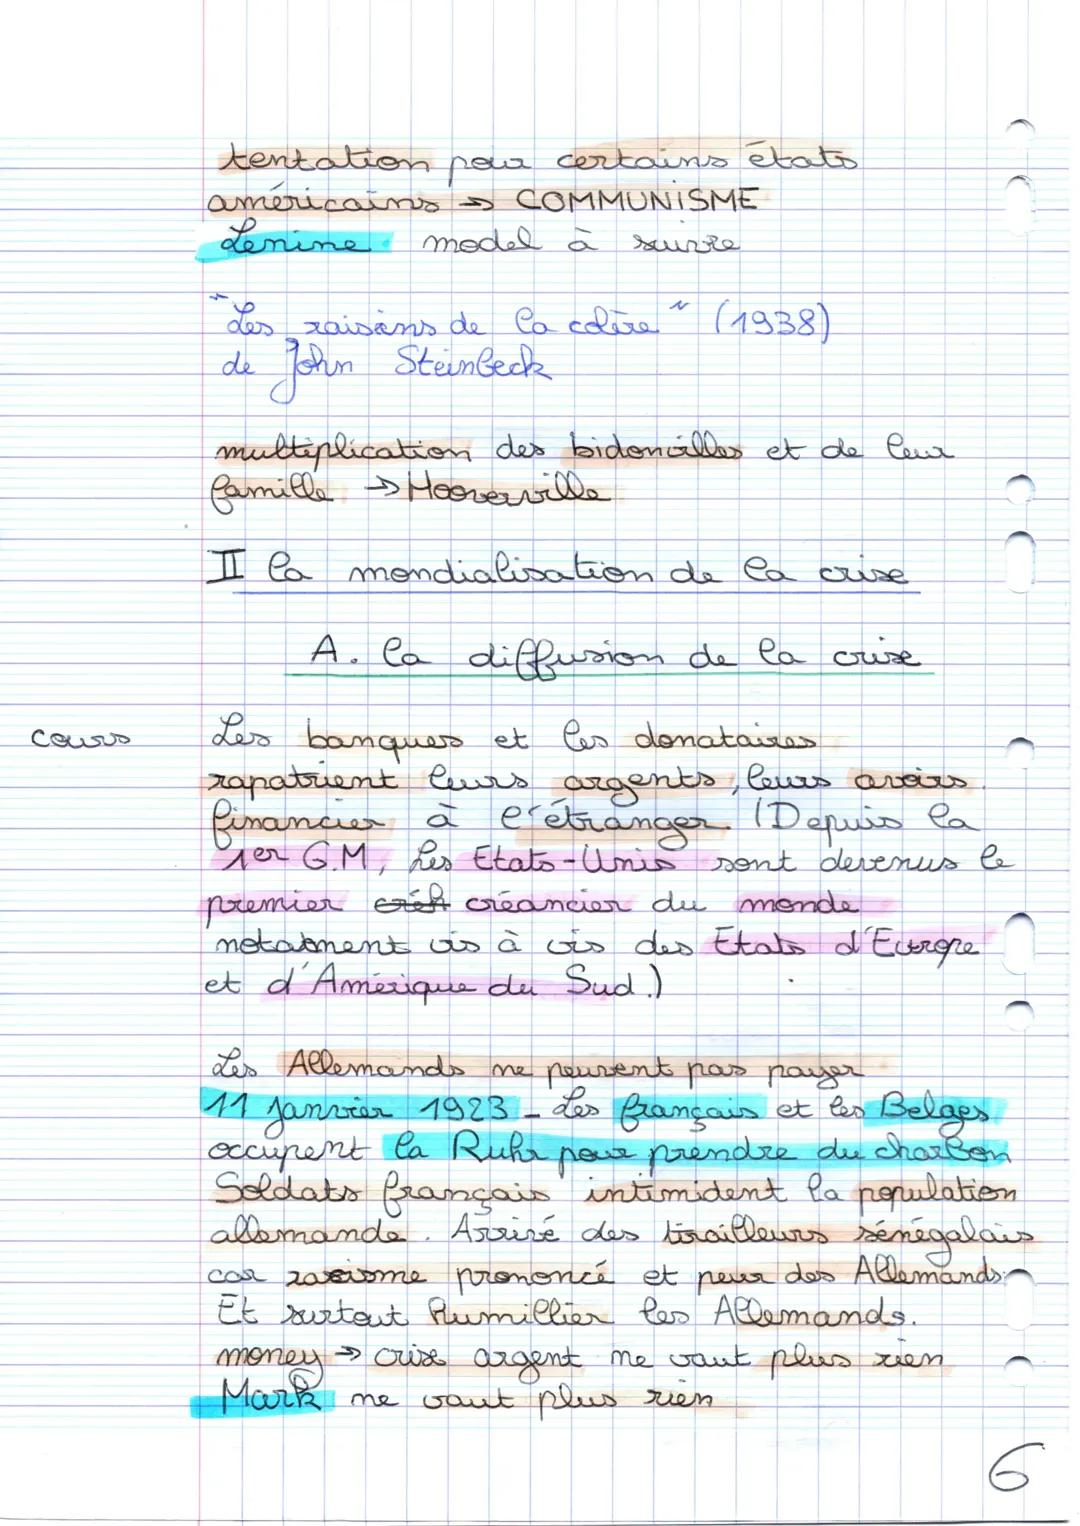 tentation pour certains états
américains → COMMUNISME
Lénine model à suivre
"Les raisins de la colère" (1938)
de John Steinbeck
multiplication des bidonvilles et de leur
famille → Hooverville
II la mondialisation de la crise
A. la diffusion de la crise
cours
Les banques et les donataires
rapatrient leurs argents, leurs avoirs
financier à l'étranger. (Depuis la
1er G.M, Les Etats-Unis sont devenus le
premier créancier du monde
notamment vis à vis des Etats d'Europe
et d'Amérique du Sud.)
Les Allemands ne peuvent pas payer
11 janvier 1923 - Les français et les Belges
occupent la Ruhr pour prendre du charbon
Soldats français intimident la population
allemande. Arrivé des tirailleurs sénégalais
car racisme prononcé et peur des Allemands.
Et surtout humillier les Allemands.
money → crise argent ne vaut plus rien
Mark ne vaut plus rien
6